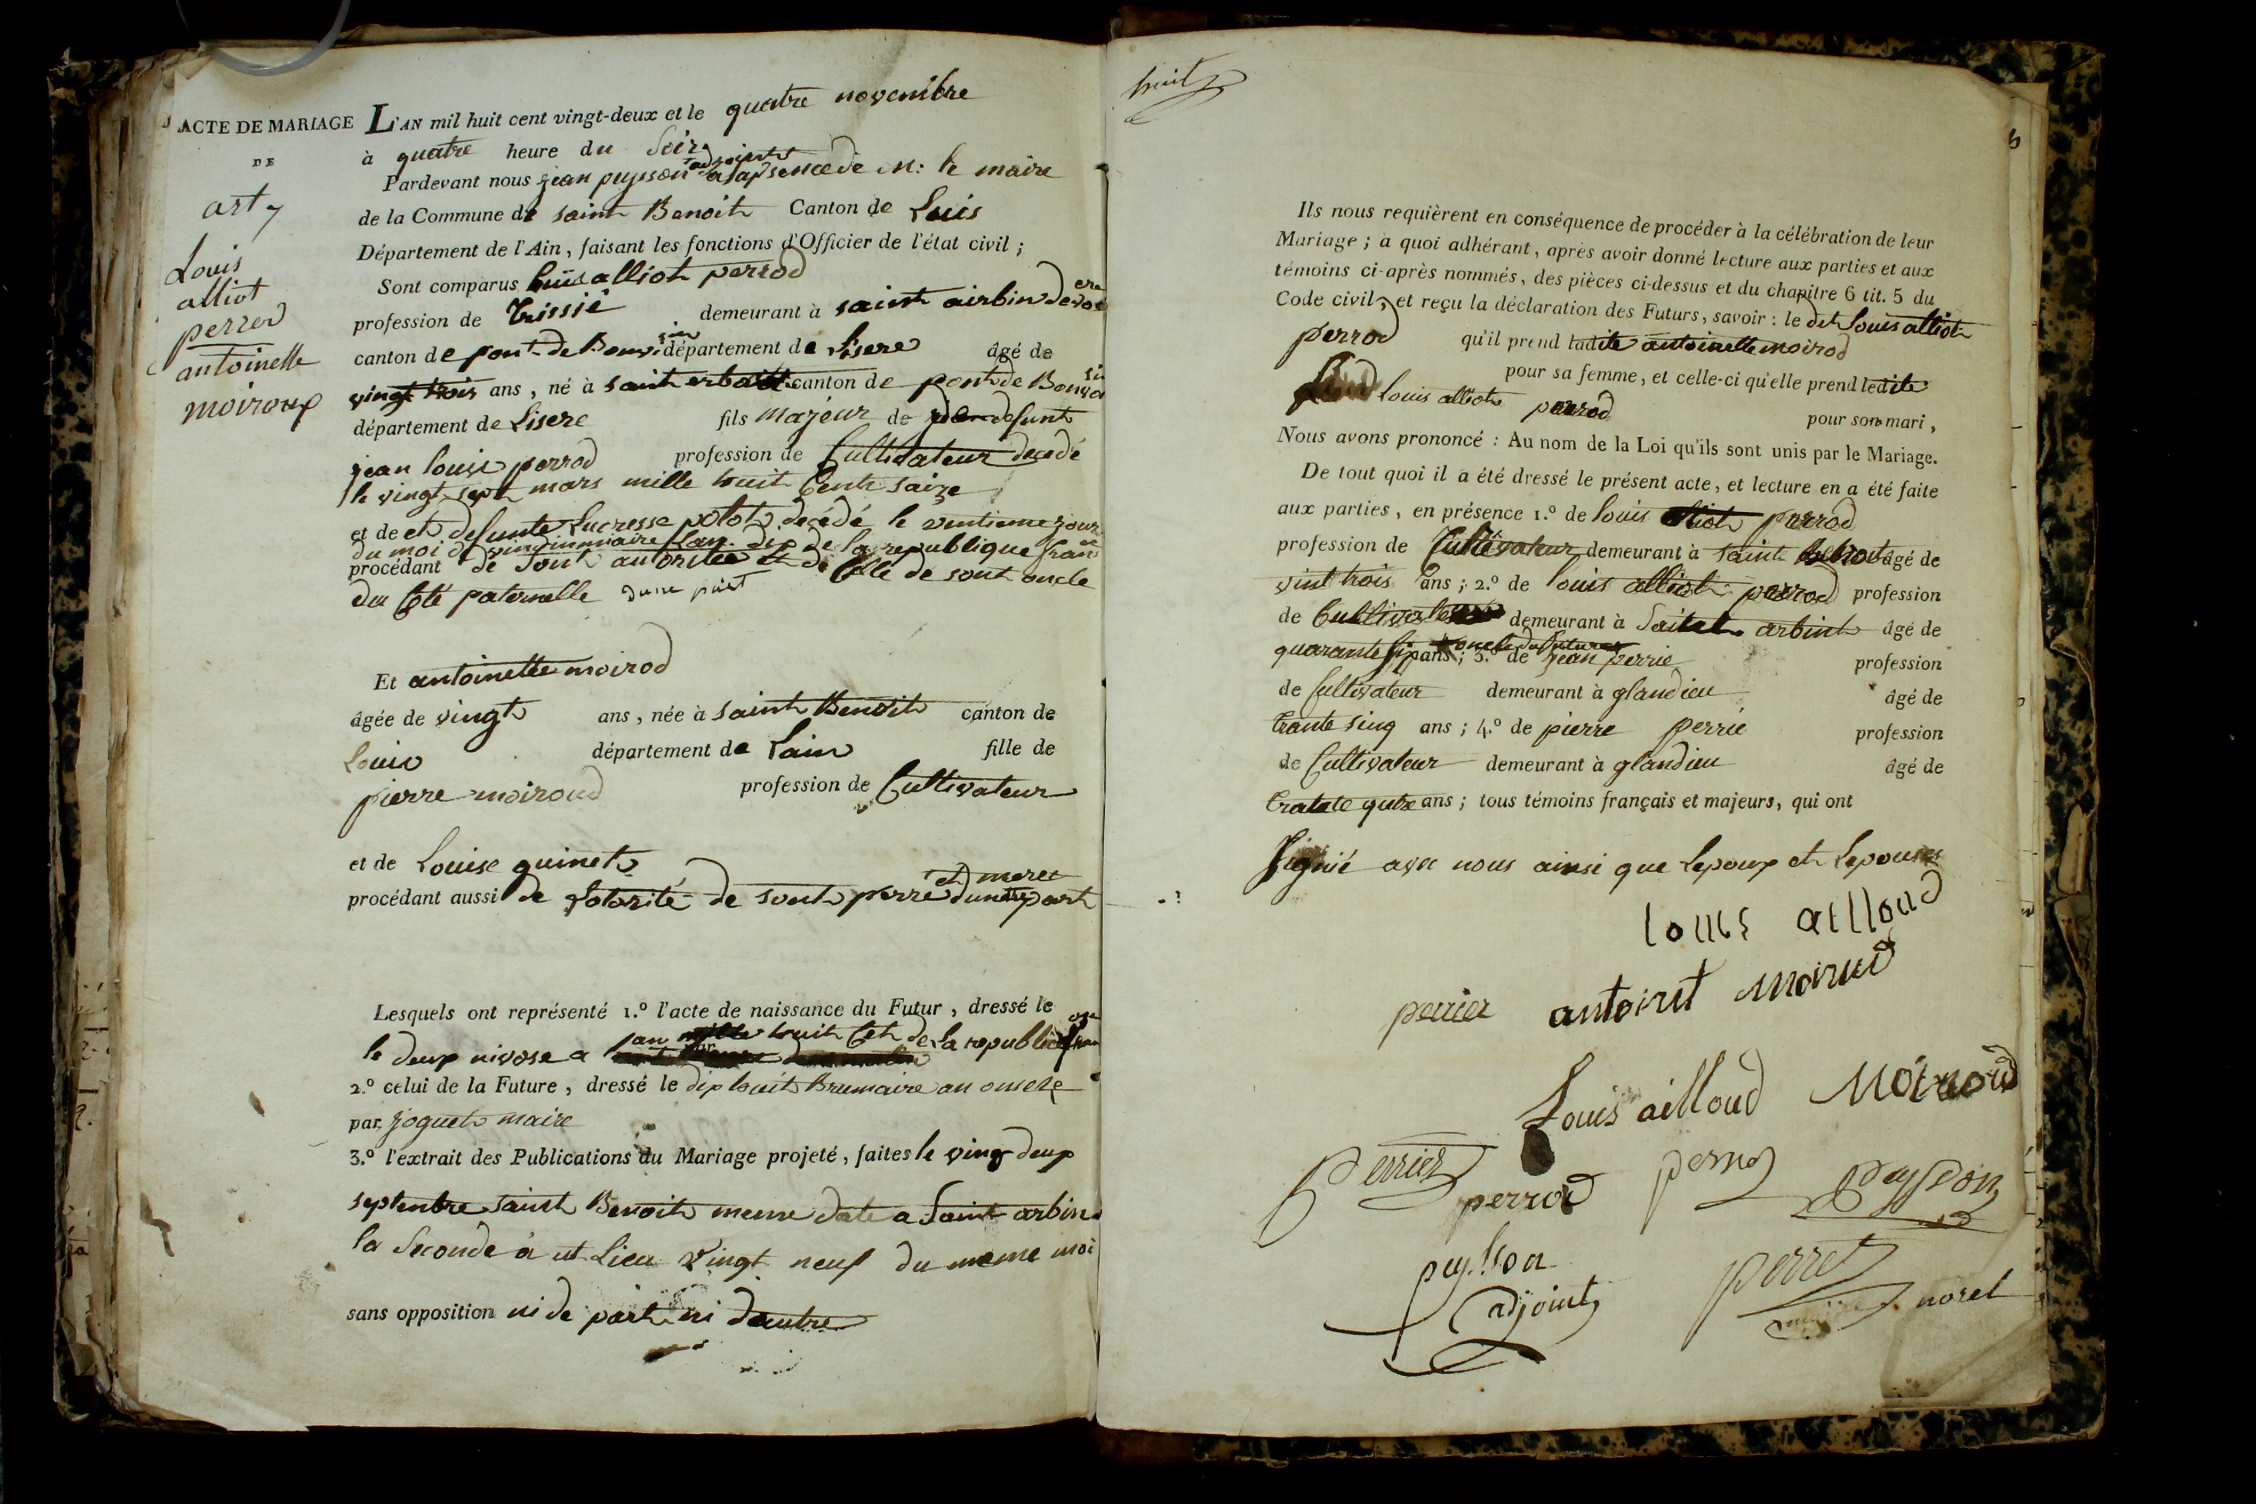 ACTE DE MARIAGE
DE
art 7
Louis
alliot
perrod
antoinette
moiroux
L'AN mil huit cent vingt-deux et le quatre novembre
à quatre heure du Soir
Pardevant nous jean puysson adjoint a lapsence de M: le maire
de la Commune de saint Benoit Canton de Luis
Département de l'Ain, faisant les fonctions d'Officier de l'état civil;
Sont comparus Luïis alliot perrod
profession de Tissié demeurant à saint airbin de
canton de pont de Bonvoisin département de Lisere âgé de
vingt trois ans, né à saint canton de pont de Bonvoisin
département de Lisere fils majeur de defunt
jean louis perrod profession de Cultivateur decedé
le vingt sept mars mille huit Cent saize
et de et defunte Lucresse polot decédé le ventieme jour
du moi de l'an dix de la republique
procédant de sont autoritée et de Celle de sont oncle
du Coté paternelle dune part
Et antoinette moirod
âgée de vingt ans, née à saint Benoit canton de
Louis département de Lain fille de
pierre moiroud profession de Cultivateur
et de Louise quinet
procédant aussi de lotorité de sont perre et mere part
Lesquels ont représenté 1.º l'acte de naissance du Futur, dressé le
le deux nivose a lan de la republique
2.º celui de la Future, dressé le dix huit Brumaire an onseze
par joguet maire
3.º l'extrait des Publications du Mariage projeté, faites le ving deux
septenbre saint Benoit meme date a Saint arbin
la Seconde a ut Lieu vingt neuf du meme moi
sans opposition ni de part ni dautre
huit
Ils nous requièrent en conséquence de procéder à la célébration de leur
Mariage; à quoi adhérant, après avoir donné lecture aux parties et aux
témoins ci-après nommés, des pièces ci-dessus et du chapitre 6 tit. 5 du
Code civil, et reçu la déclaration des Futurs, savoir: le dit Louis alliot
perrod qu'il prend ladite antoinette moirod
pour sa femme, et celle-ci qu'elle prend ledite
louis alliot perrod pour son mari,
Nous avons prononcé: Au nom de la Loi qu'ils sont unis par le Mariage.
De tout quoi il a été dressé le présent acte, et lecture en a été faite
aux parties, en présence 1.º de louis alliot perrod
profession de Cultivateur demeurant à saint Benoit âgé de
vint trois ans; 2.º de louis alliot perrod profession
de demeurant à Saint arbint âgé de
quarante six ans; oncle du future 3.º de jean perrié profession
de Cultivateur demeurant à glandieu âgé de
trante sinq ans; 4.º de pierre perrié profession
de Cultivateur demeurant à glandieu âgé de
ans; tous témoins français et majeurs, qui ont
Signié avec nous ainsi que lepoux et lepouse
louis ailloud
perrier antoinet Moirud
Louis ailloud Moiroud
Perrier perrod puysson
puysson perret
adjoint morel